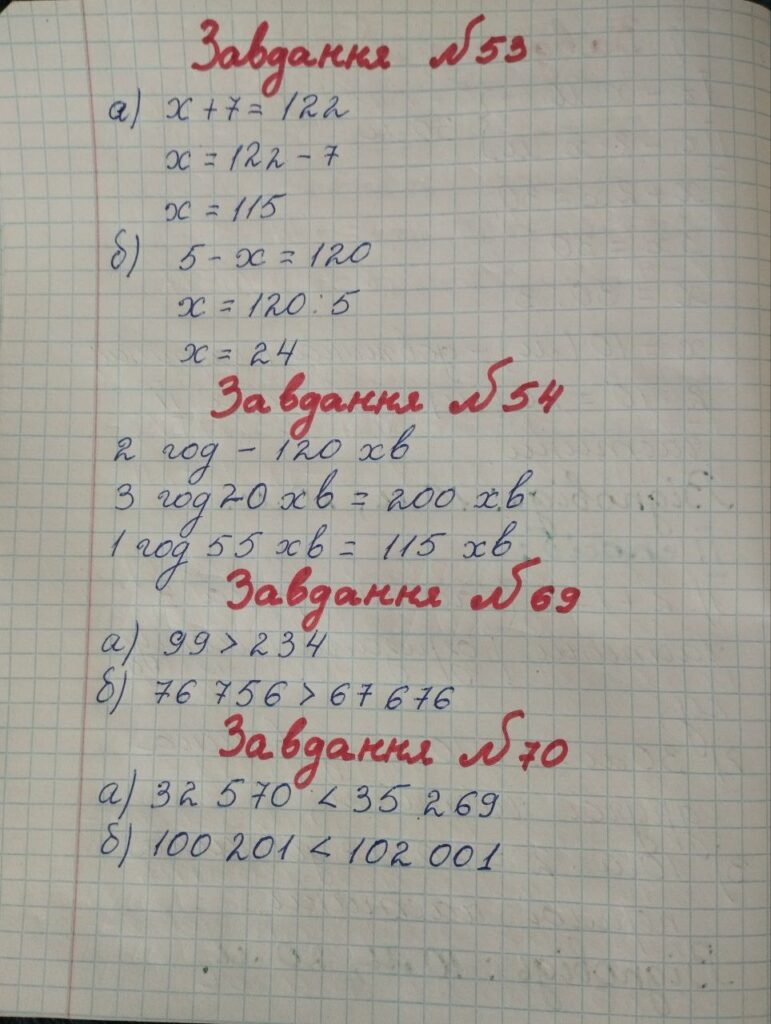 Завдання №53
а) х + 7 = 122
х = 122 - 7
х = 115
б) 5 - х = 120
х = 120 : 5
х = 24
Завдання №54
2 год - 120 хв
3 год 20 хв = 200 хв
1 год 55 хв = 115 хв
Завдання №69
а) 99 > 234
б) 76 756 > 67 676
Завдання №70
а) 32 570 < 35 269
б) 100 201 < 102 001